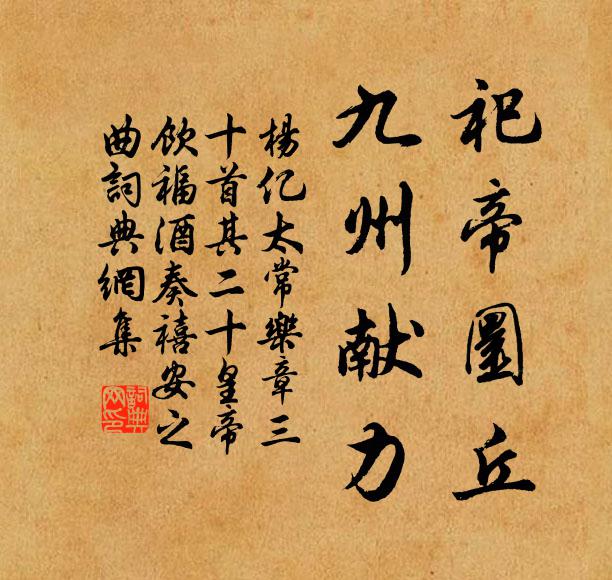 祀帝圜丘
九州献力
楊亿太常樂章三
十首其二十皇帝
飲福酒奏禧安之
曲詞典網集
詞典
网印